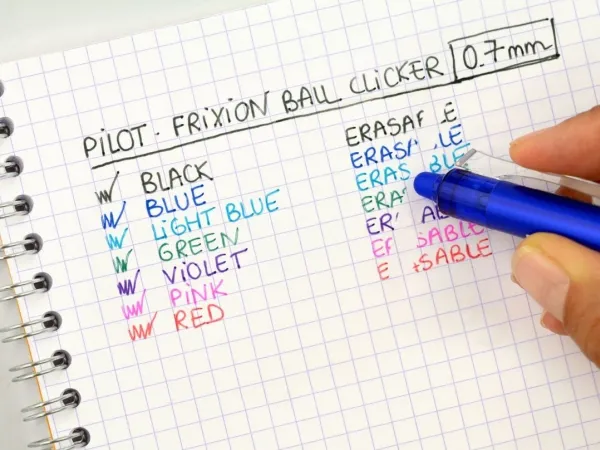 PILOT - FRIXION BALL CLICKER 0.7mm
BLACK
BLUE
LIGHT BLUE
GREEN
VIOLET
PINK
RED
ERASA E
ERAS LE
ERAS BLE
ERA
ER AB
E SABLE
E SABLE